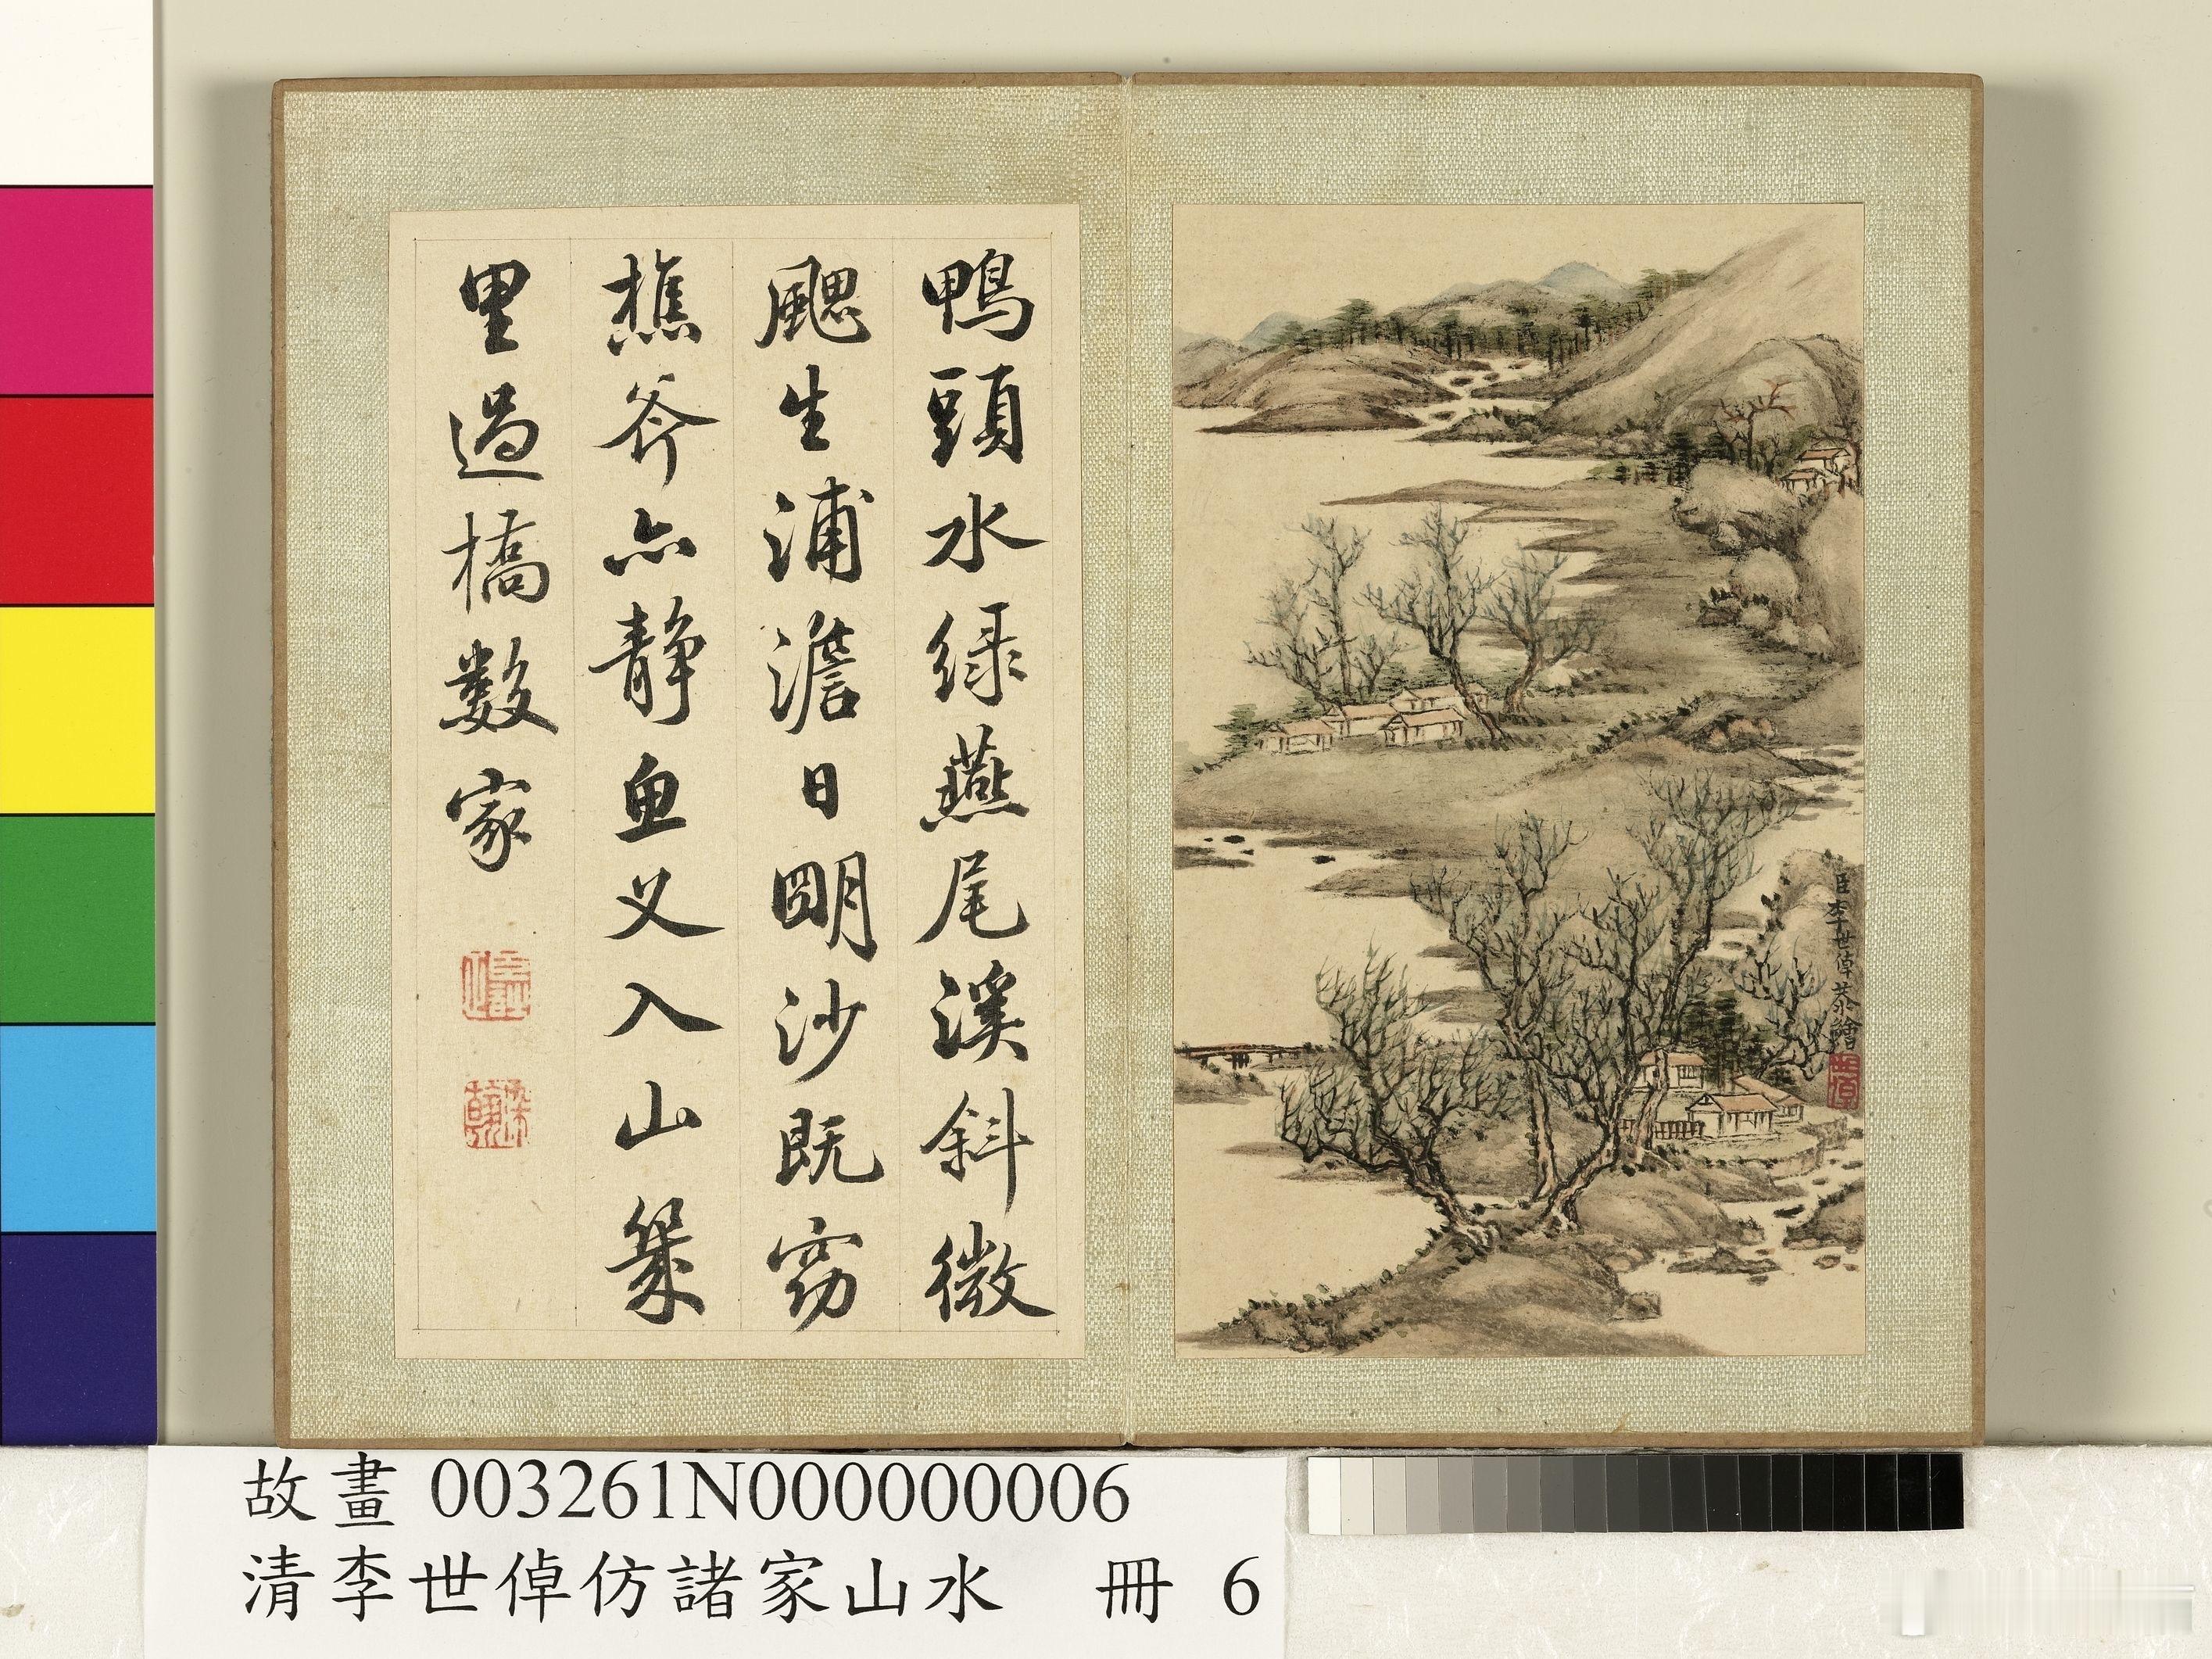 臣李世倬恭繪
鴨頭水緑燕尾溪斜微
颸生浦澹日朙沙既窈
樵斧亦靜魚叉入山幾
里過橋數家
染翰
故畫 003261N000000006
清李世倬仿諸家山水 冊 6